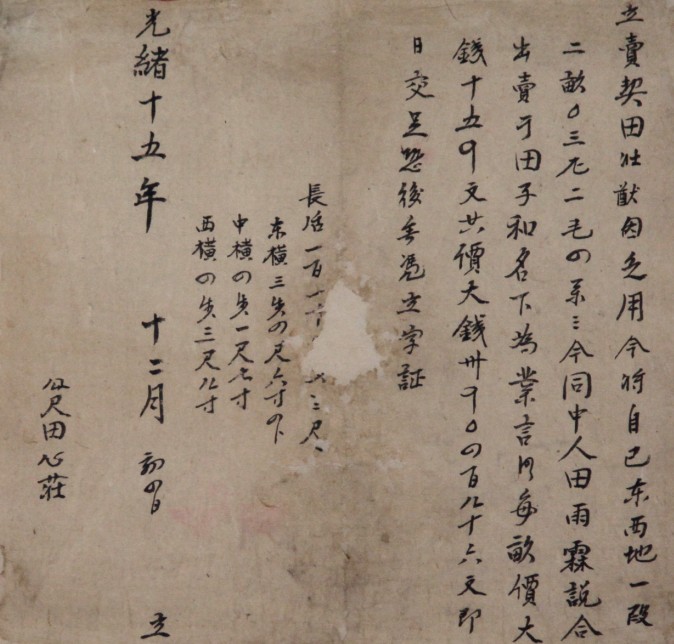 立賣契田壯猷因乏用今將自己东西地一段
二畝0三厘二毛の系三今同中人田雨霖説合
出賣于田子和名下為業言明每畝價大
錢十五千文共價大錢卅千0の百八十六文即
日交足恐後無憑立字証
長活一百一十 三尺
东横三步の尺六寸の卜
中横の步一尺七寸
西横の步三尺八寸
光緒十五年 十二月 初の日 立
公尺田心莊